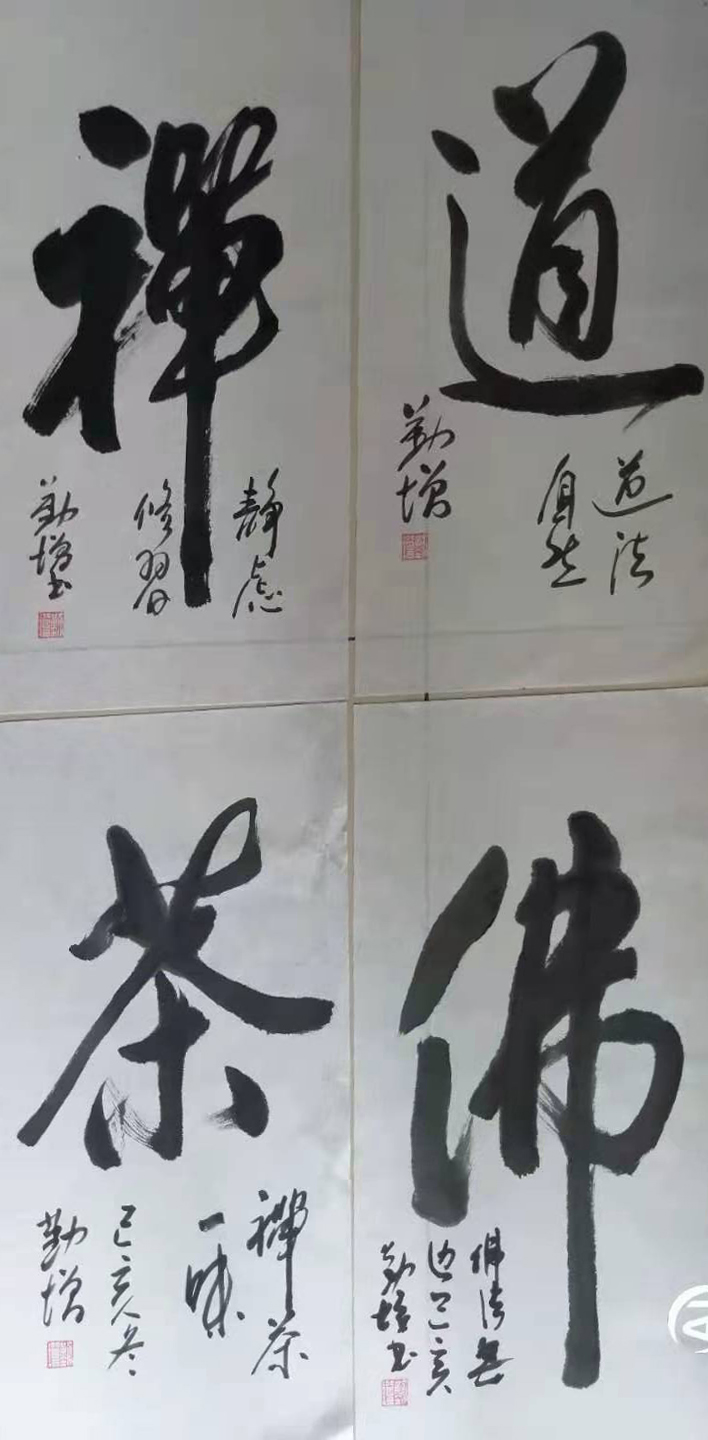 道
道法
自然
勤增
禪
静慮
修習
勤增书
佛
佛法无
边己亥
勤增书
茶
禪茶
一味
己亥冬
勤增